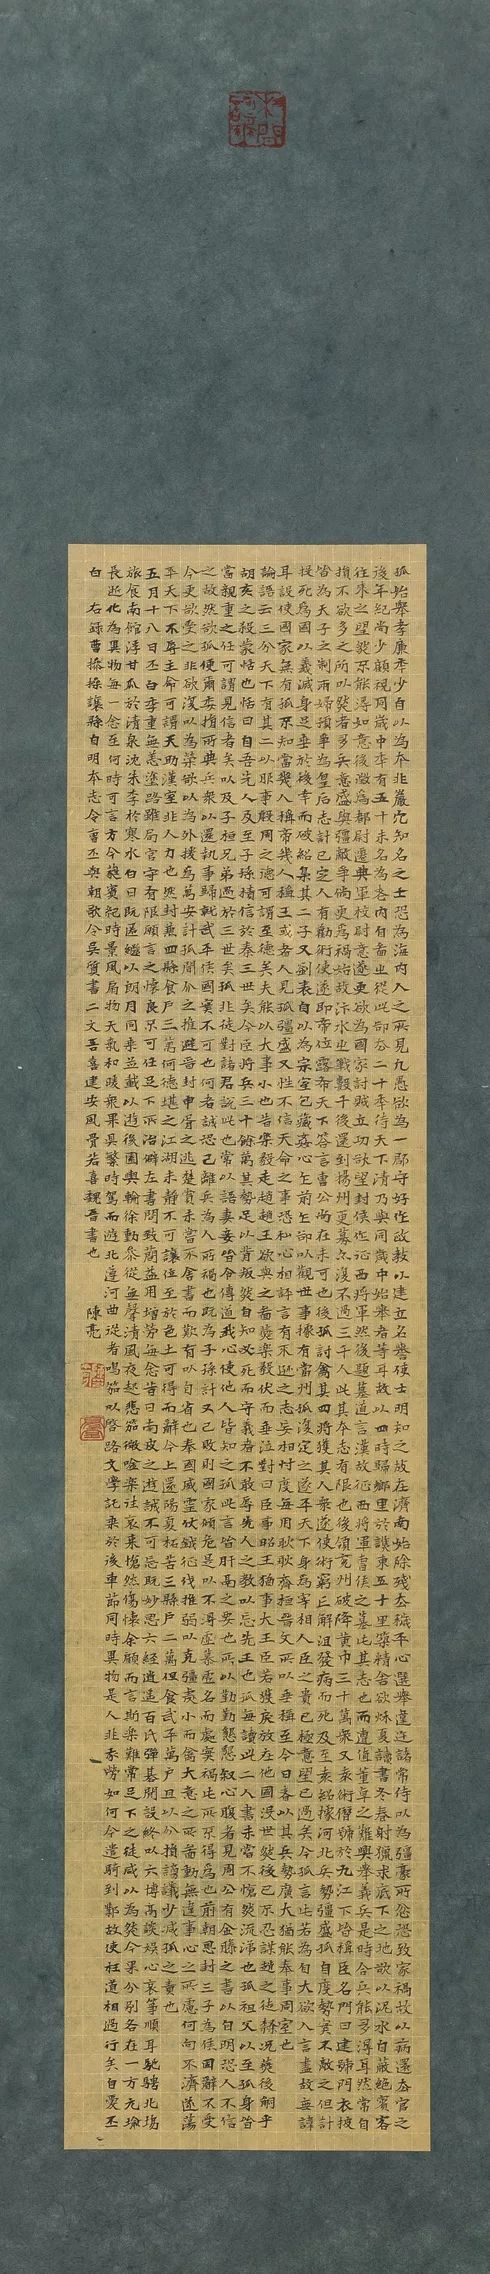 孤始舉孝廉年少自以為本非巖穴知名之士恐為海內人之所見凡愚欲為一郡守好作政教以建立名譽使士明知之故在濟南始除殘去穢平心選舉違迕諸常侍以為彊豪所忿恐致家禍故以病還去官之
後年紀尚少顧視同歲中年有五十未名為老內自圖之從此卻去二十年待天下清乃與同歲中始舉者等耳故以四時歸鄉里於譙東五十里築精舍欲秋夏讀書冬春射獵求底下之地欲以泥水自蔽絕賓客
往來之望然不能得如意後徵為都尉遷典軍校尉意遂更欲為國家討賊立功欲望封侯作征西將軍然後題墓道言漢故征西將軍曹侯之墓此其志也而遭值董卓之難興舉義兵是時合兵能多得耳然常自
損不欲多之所以然者多兵意盛與彊敵爭倘更為禍始故汴水之戰數千後還到揚州更募亦復不過三千人此其本志有限也後領兗州破降黃巾三十萬眾又袁術僭號於九江下皆稱臣名門曰建號門衣被
皆為天子之制兩婦預爭為皇后志計已定人有勸術使遂即帝位露布天下答言曹公尚在未可也後孤討禽其四將獲其人眾遂使術窮亡解沮發病而死及至袁紹據河北兵勢彊盛孤自度勢實不敵之但計
投死為國以義滅身足垂於後幸而破紹梟其二子又劉表自以為宗室包藏姦心乍前乍卻以觀世事據有當州孤復定之遂平天下身為宰相人臣之貴已極意望已過矣今孤言此若為自大欲人言盡故無諱
耳設使國家無有孤不知當幾人稱帝幾人稱王或者人見孤彊盛又性不信天命之事恐私心相評言有不遜之志妄相忖度每用耿耿齊桓晉文所以垂稱至今日者以其兵勢廣大猶能奉事周室也
論語云三分天下有其二以服事殷周之德可謂至德矣夫能以大事小也昔樂毅走趙趙王欲與之圖燕樂毅伏而垂泣對曰臣事昭王猶事大王臣若獲戾放在他國沒世然後已不忍謀趙之徒隸況燕後嗣乎
胡亥之殺蒙恬也恬曰自吾先人及至子孫積信於秦三世矣今臣將兵三十餘萬其勢足以背叛然自知必死而守義者不敢辱先人之教以忘先王也孤每讀此二人書未嘗不愴然流涕也孤祖父以至孤身皆
當親重之任可謂見信者矣以及子桓兄弟過於三世矣孤非徒對諸君說此也常以語妻妾皆令傳道我心使他人皆知之孤此言皆肝鬲之要也所以勤勤懇懇敘心腹者見周公有金縢之書以自明恐人不信
之故然欲孤便爾委捐所典兵眾以還執事歸就武平侯國實不可也何者誠恐己離兵為人所禍也既為子孫計又己敗則國家傾危是以不得慕虛名而處實禍此所不得為也前朝恩封三子為侯固辭不受
今更欲受之非欲復以為榮欲以為外援為萬安計孤聞介之推避晉封申胥之逃楚賞未嘗不舍書而歎有以自省也奉國威靈仗鉞征伐推弱以克彊處小而禽大意之所圖動無違事心之所慮何向不濟遂蕩
平天下不辱主命可謂天助漢室非人力也然封兼四縣食戶三萬何德堪之江湖未靜不可讓位至於邑土可得而辭今上還陽夏柘苦三縣戶二萬但食武平萬戶且以分損謗議少減孤之責也
五月十八日丕白季重無恙塗路雖局官守有限願言之懷良不可任足下所治僻左書問致簡益用增勞每念昔日南皮之遊誠不可忘既妙思六經逍遙百氏彈棊閒設終以六博高談娛心哀箏順耳馳騁北場
旅食南館浮甘瓜於清泉沈朱李於寒水白日既匿繼以朗月同乘並載以遊後園輿輪徐動參從無聲清風夜起悲笳微吟樂往哀來愴然傷懷余顧而言斯樂難常足下之徒咸以為然今果分別各在一方元瑜
長逝化為異物每一念至何時可言方今蕤賓紀時景風扇物天氣和暖眾果具繁時駕而遊北遵河曲從者鳴笳以啓路文學託乘於後車節同時異物是人非我勞如何今遣騎到鄴故使枉道相過行矣自愛丕
白 右錄曹操操讓縣自明本志令曹丕與朝歌令吳質書二文吾喜建安風骨若喜魏晉書也 陳亮